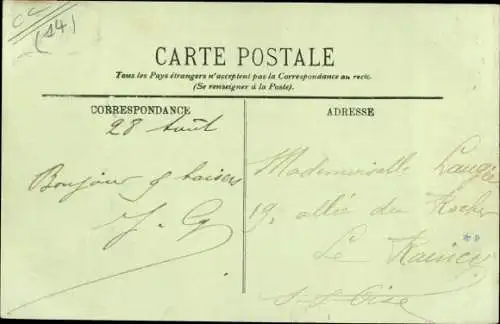 (14)
CARTE POSTALE
Tous les Pays étrangers n'acceptent pas la Correspondance au recto.
(Se renseigner à la Poste).
CORRESPONDANCE
ADRESSE
28 Août
Bonjour & baisers
J. G
Mademoiselle Laugie
19, allée du Rocher
Le Raincy
S-&-Oise